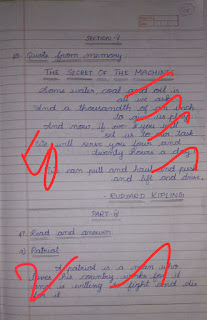 SECTION-V
Quote from memory:
THE SECRET OF THE MACHINES
Some water coal and oil is
all we ask
And a thousandth of an inch
to give us play
And now if we you will
set us to our task
We will serve you four and
twenty hours a day
We can pull and haul and push
and lift and drive
- RUDYARD KIPLING
PART-IV
Read and answer
a) Patriot
A patriot is a man who
loves his country works for it
and is willing to fight and die
for it